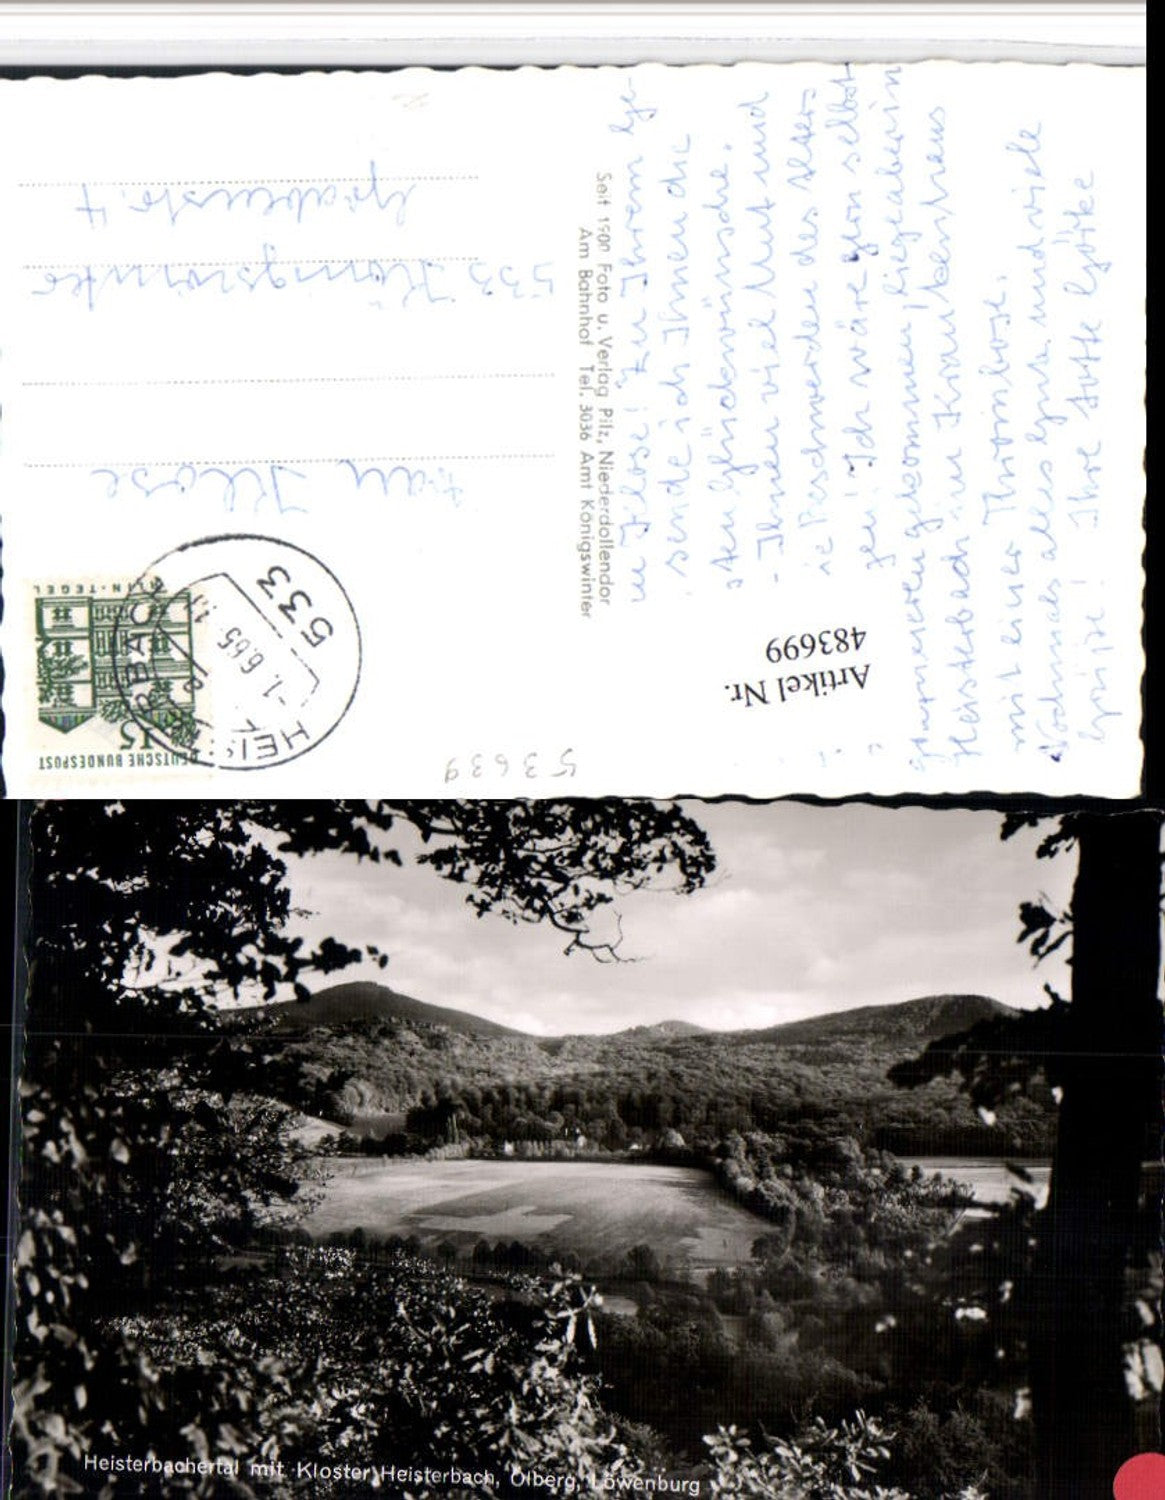 u Klose! Zu Ihrem Ge-
sende ich Ihnen die
sten Glückwünsche.
Ihnen viel Mut und
ie Beschwerden des Alters
gen! Ich wäre gern selbst
gekommen, liege aber in
Heisterbach im Krankenhaus
mit einer Thrombose.
Nochmals alles Gute und viele
Grüße! Ihre
Seit 1900 Foto u. Verlag Pilz, Niederdollendorf
Am Bahnhof Tel. 3036 Amt Königswinter
Frau Klose
533 Königswinter
Grabenstr. 7
DEUTSCHE BUNDESPOST
15
BERLIN-TEGEL
533
-1.6.65
HEISTERBACH
Artikel Nr.
483699
53639
Heisterbachertal mit Kloster Heisterbach, Ölberg, Löwenburg